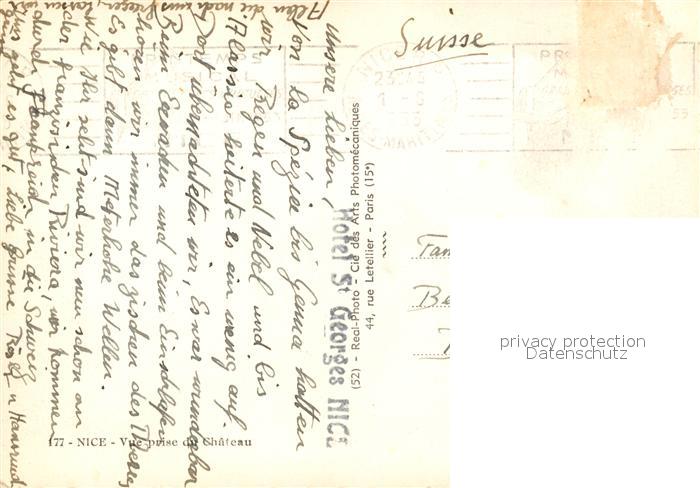 Suisse
Unsere Lieben,
Von La Spezia bis Genua hatten
wir Regen und Nebel und bis
Alassio heiterte es ein wenig auf.
Dort übernachteten wir, Es war wunderbar
Beim Erwachen und beim Einschlafen
hören wir immer das zischen des Meeres
Es gibt dann Meterhohe Wellen.
wie Ihr seht sind wir nun schon an
der französischen Riviera, wir kommen
durch Frankreich in die Schweiz
uns geht es gut, liebe Grüsse
Allen die nach uns fragen,
Hotel St Georges NICE
(52) - Real-Photo - Cie des Arts Photomécaniques
44, rue Letellier - Paris (15e)
177 - NICE - Vue prise du Château
NICE
Fam
Be
privacy protection
Datenschutz